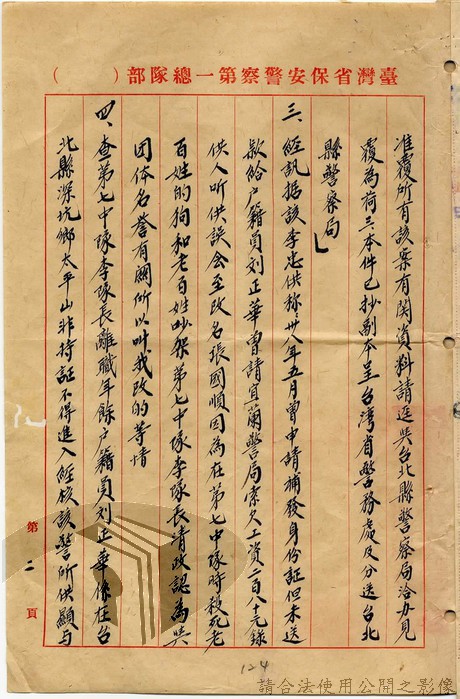 臺灣省保安警察第一總隊部(　　　)
准覆所有該案有関資料請逕與台北縣警察局洽办見
覆為荷三本件已抄副本呈台湾省警務處及分送台北
縣警察局」
三、經訊据該李忠供称：卅八年五月曾申請補發身份証但未送
款給户籍員刘正華曾請宜蘭警局索欠工資二百八十元錄
供人听供誤会至改名張國順因為在第七中隊時殺死老
百姓的狗和老百姓吵架第七中隊李隊長清政認為與
团体名誉有関所以叫我改的等情
四、查第七中隊李隊長離職年餘户籍員刘正華係在台
北縣深坑鄉太平山非持証不得進入經核該警所供顯与
第二頁
124
請合法使用公開之影像